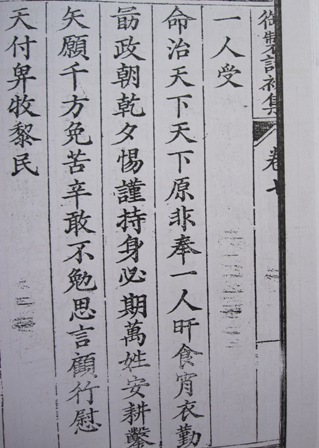 御製詩初集 卷七
一人受
命治天下天下原非奉一人旰食宵衣勤
政朝乾夕惕謹持身必期萬姓安耕鑿
矢願千方免苦辛敢不勉思言顧行慰
天付畀牧黎民